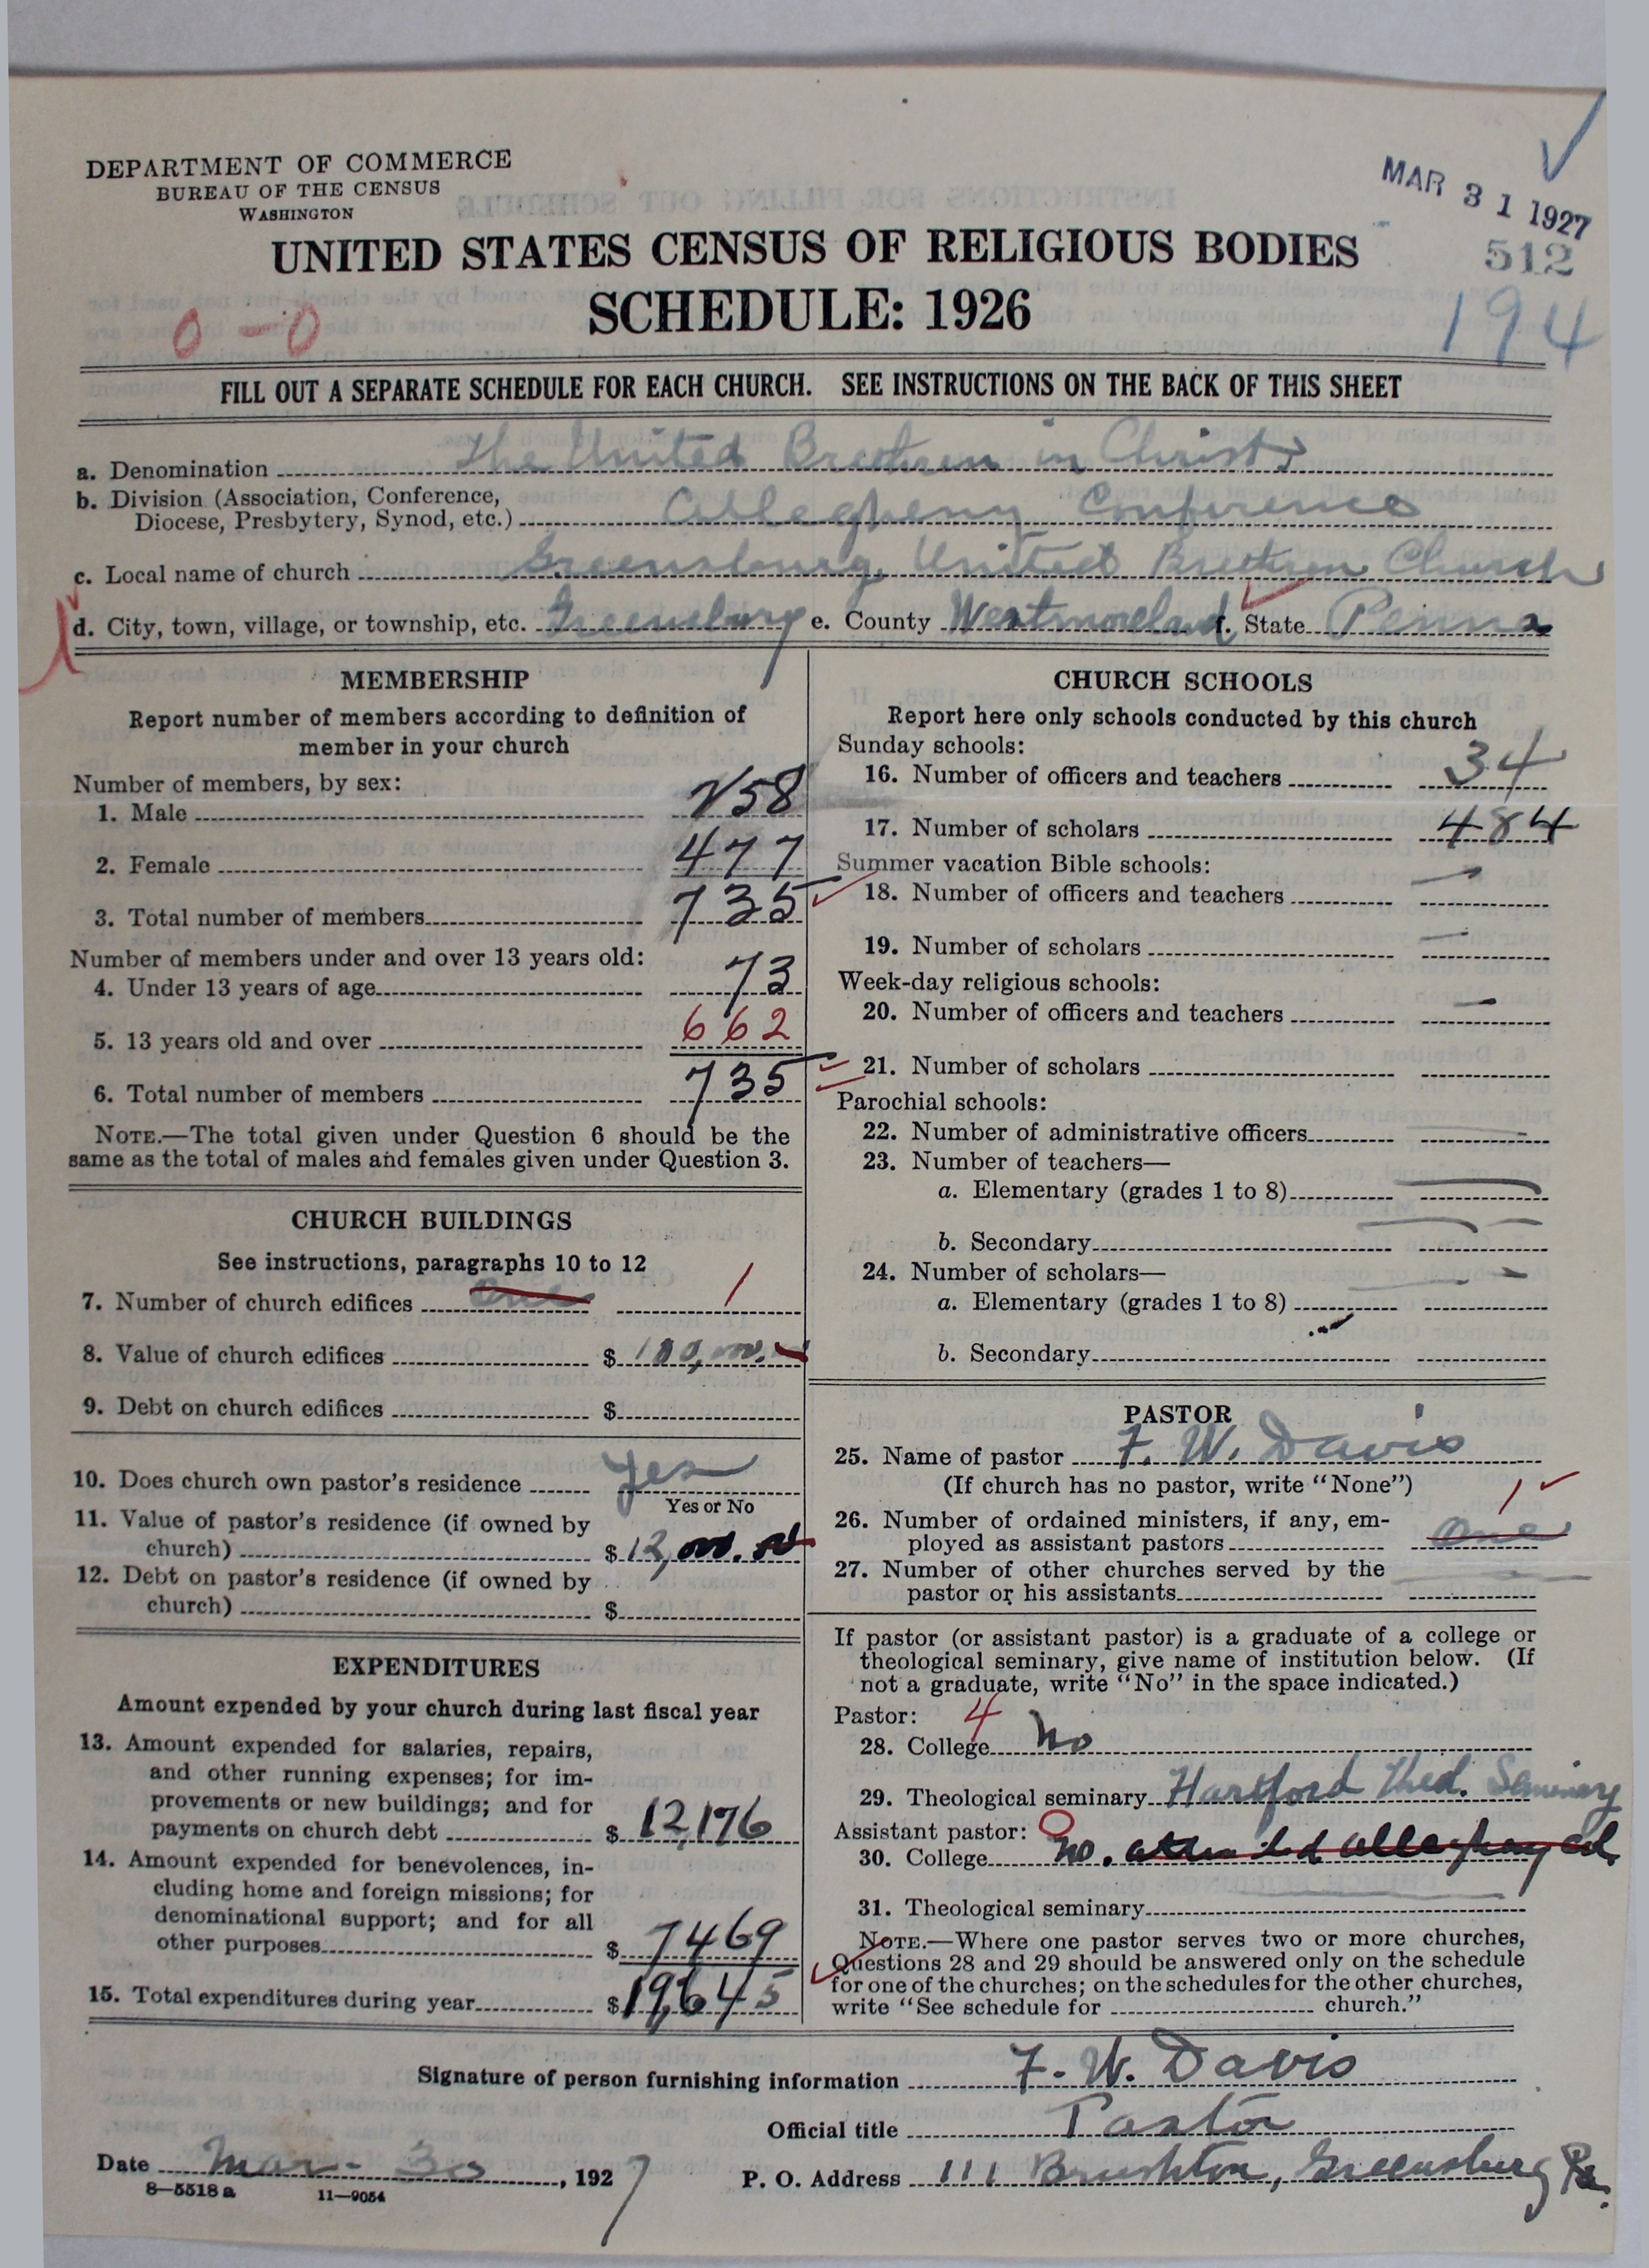 DEPARTMENT OF COMMERCE
BUREAU OF THE CENSUS
WASHINGTON
MAR 31 1927
512
194
UNITED STATES CENSUS OF RELIGIOUS BODIES
SCHEDULE: 1926
0-0
FILL OUT A SEPARATE SCHEDULE FOR EACH CHURCH. SEE INSTRUCTIONS ON THE BACK OF THIS SHEET
a. Denomination The United Brethren in Christ
b. Division (Association, Conference,
Diocese, Presbytery, Synod, etc.) Allegheny Conference
c. Local name of church Greensburg United Brethren Church
d. City, town, village, or township, etc. Greensburg e. County Westmoreland f. State Penna
MEMBERSHIP
Report number of members according to definition of
member in your church
Number of members, by sex:
1. Male 258
2. Female 477
3. Total number of members 735
Number of members under and over 13 years old:
4. Under 13 years of age 73
5. 13 years old and over 662
6. Total number of members 735
NOTE.—The total given under Question 6 should be the
same as the total of males and females given under Question 3.
CHURCH BUILDINGS
See instructions, paragraphs 10 to 12
7. Number of church edifices one 1
8. Value of church edifices $ 100,000.
9. Debt on church edifices $
10. Does church own pastor's residence Yes
Yes or No
11. Value of pastor's residence (if owned by
church) $ 12,000.00
12. Debt on pastor's residence (if owned by
church) $
EXPENDITURES
Amount expended by your church during last fiscal year
13. Amount expended for salaries, repairs,
and other running expenses; for im-
provements or new buildings; and for
payments on church debt $ 12,176
14. Amount expended for benevolences, in-
cluding home and foreign missions; for
denominational support; and for all
other purposes $ 7469
15. Total expenditures during year $ 19,645
CHURCH SCHOOLS
Report here only schools conducted by this church
Sunday schools:
16. Number of officers and teachers 34
17. Number of scholars 484
Summer vacation Bible schools:
18. Number of officers and teachers —
19. Number of scholars —
Week-day religious schools:
20. Number of officers and teachers —
21. Number of scholars
Parochial schools:
22. Number of administrative officers —
23. Number of teachers—
a. Elementary (grades 1 to 8) —
b. Secondary —
24. Number of scholars—
a. Elementary (grades 1 to 8) —
b. Secondary
PASTOR
25. Name of pastor F. W. Davis
(If church has no pastor, write "None")
26. Number of ordained ministers, if any, em-
ployed as assistant pastors one 1
27. Number of other churches served by the
pastor or his assistants —
If pastor (or assistant pastor) is a graduate of a college or
theological seminary, give name of institution below. (If
not a graduate, write "No" in the space indicated.)
Pastor: 4
28. College No
29. Theological seminary Hartford Theo. Seminary
Assistant pastor: 0
30. College no. attended Allegheny Col.
31. Theological seminary —
NOTE.—Where one pastor serves two or more churches,
Questions 28 and 29 should be answered only on the schedule
for one of the churches; on the schedules for the other churches,
write "See schedule for church."
Signature of person furnishing information F. W. Davis
Official title Pastor
Date Mar. 30, 1927
P. O. Address 111 Brushton, Greensburg Pa.
8-5518 a 11-9054